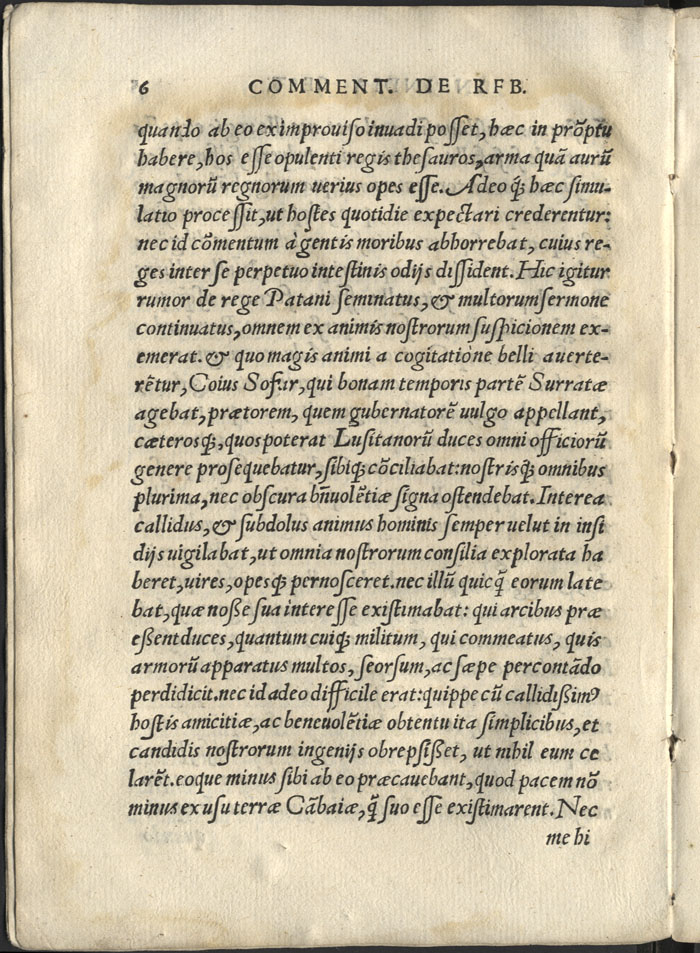 6 COMMENT. DE RFB.
quando ab eo ex improuiso inuadi posset, hæc in prõptu
habere, hos esse opulenti regis thesauros, arma quã aurũ
magnorũ regnorum uerius opes esse. Adeo q́; hæc simu-
latio processit, ut hostes quotidie expectari crederentur:
nec id cõmentum à gentis moribus abhorrebat, cuius re-
ges inter se perpetuo intestinis odijs dissident. Hic igitur
rumor de rege Patani seminatus, & multorum sermone
continuatus, omnem ex animis nostrorum suspicionem ex-
emerat. & quo magis animi a cogitatione belli auerte-
rẽtur, Coius Sofar, qui bonam temporis partẽ Surratæ
agebat, prætorem, quem gubernatorẽ uulgo appellant,
cæterosq́;, quos poterat Lusitanorũ duces omni officiorũ
genere prosequebatur, sibiq́; cõciliabat: nostrisq́; omnibus
plurima, nec obscura bñuolẽtiæ signa ostendebat. Interea
callidus, & subdolus animus hominis semper uelut in insi
dijs uigilabat, ut omnia nostrorum consilia explorata ha
beret, uires, opesq́; pernosceret. nec illũ quicq̃ eorum late
bat, quæ noße sua interesse existimabat: qui arcibus præ
eßent duces, quantum cuiq́; militum, qui commeatus, quis
armorũ apparatus multos, seorsum, ac sæpe percontãdo
perdidicit. nec id adeo difficile erat: quippe cũ callidißimꝰ
hostis amicitiæ, ac beneuolẽtiæ obtentu ita simplicibus, et
candidis nostrorum ingenijs obrepsißet, ut nihil eum ce
larẽt. eoque minus sibi ab eo præcauebant, quod pacem nõ
minus ex usu terræ Cãbaiæ, q̃ suo esse existimarent. Nec
me hi